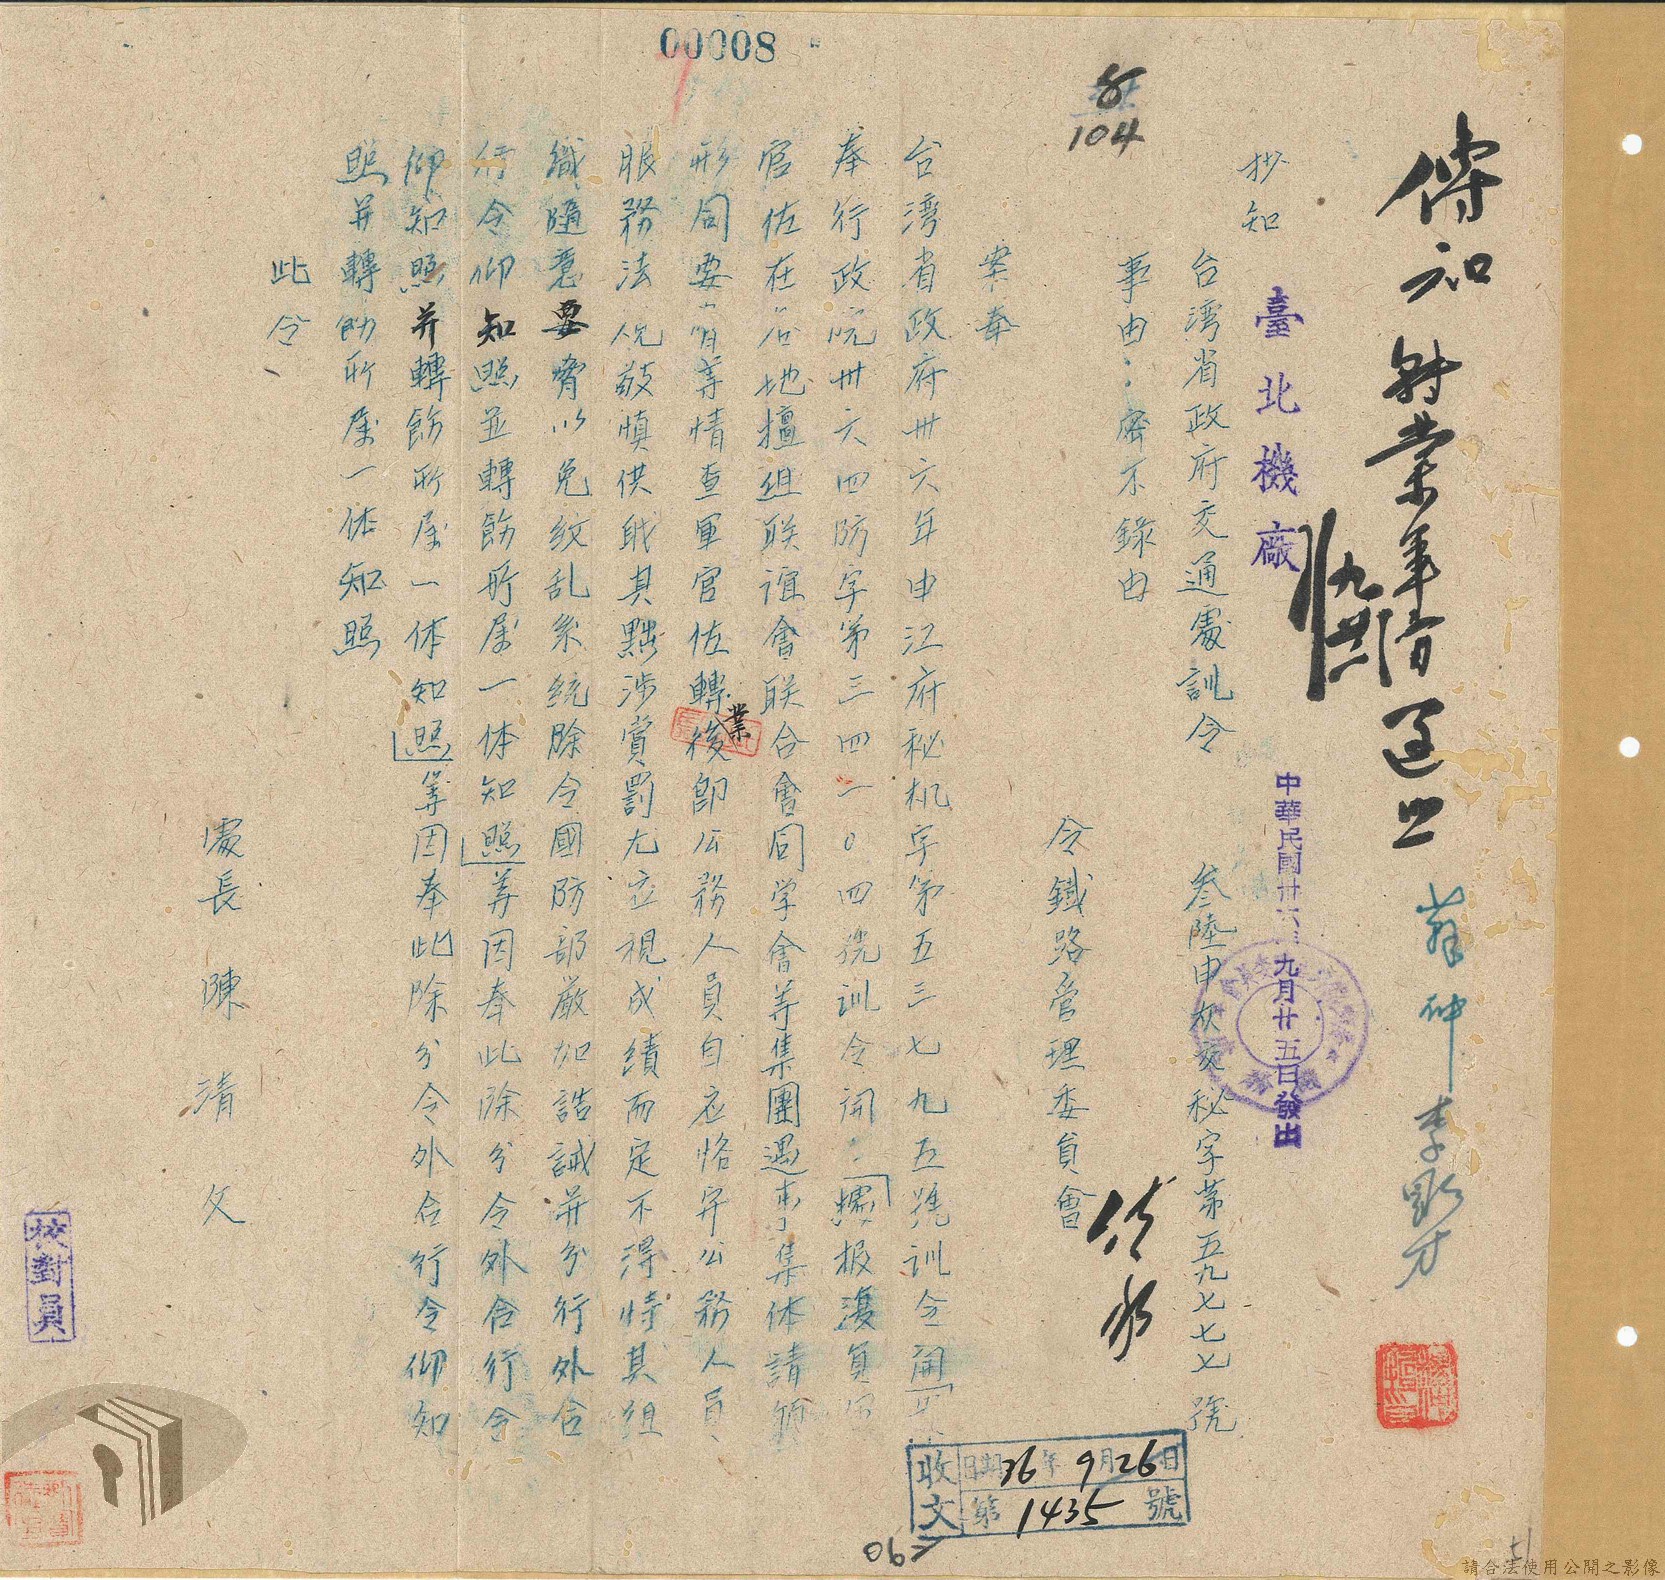 00008
8
104
傳知
抄知
臺北機廠
台湾省政府交通處訓令
叁陸申灰亥秘字第五九七七七號
中華民國卅六年九月廿五日發出
事由：密不錄由
令鐵路管理委員會
案奉
台湾省政府卅六年申江府秘机字第五三七九五號訓令開
奉行政院卅六四防字第三四二〇四號訓令開：「據报復員
官佐在各地擅组联谊會联合會同学會等集團遇事集体請願
形同要脅等情查軍官佐轉業後卽公務人員自应恪守公務人員
服務法 敬慎供職其黜涉賞罰尤应視成績而定不得恃其组
織隨意要脅以免紋乱系統除令國防部嚴加誥誡并分行外合
行令仰知照並轉飭所屬一体知照」等因奉此除分令外合行令
仰知照并轉飭所屬一体知照」等因奉此除分令外合行令仰知
照并轉飭所屬一体知照
此令
處長陳清文
校對員
收文
日期36年9月26日
第1435號
請合法使用公開之影像